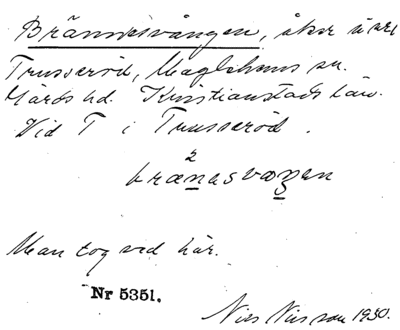 Brännesvången, åker
Trusseröd, Maglehems sn.
Gärds hd. Kristianstads län.
Vid T i Trusseröd.
2
Man tog ved här.
Nr 5351.
Nils Nilsson 1930.